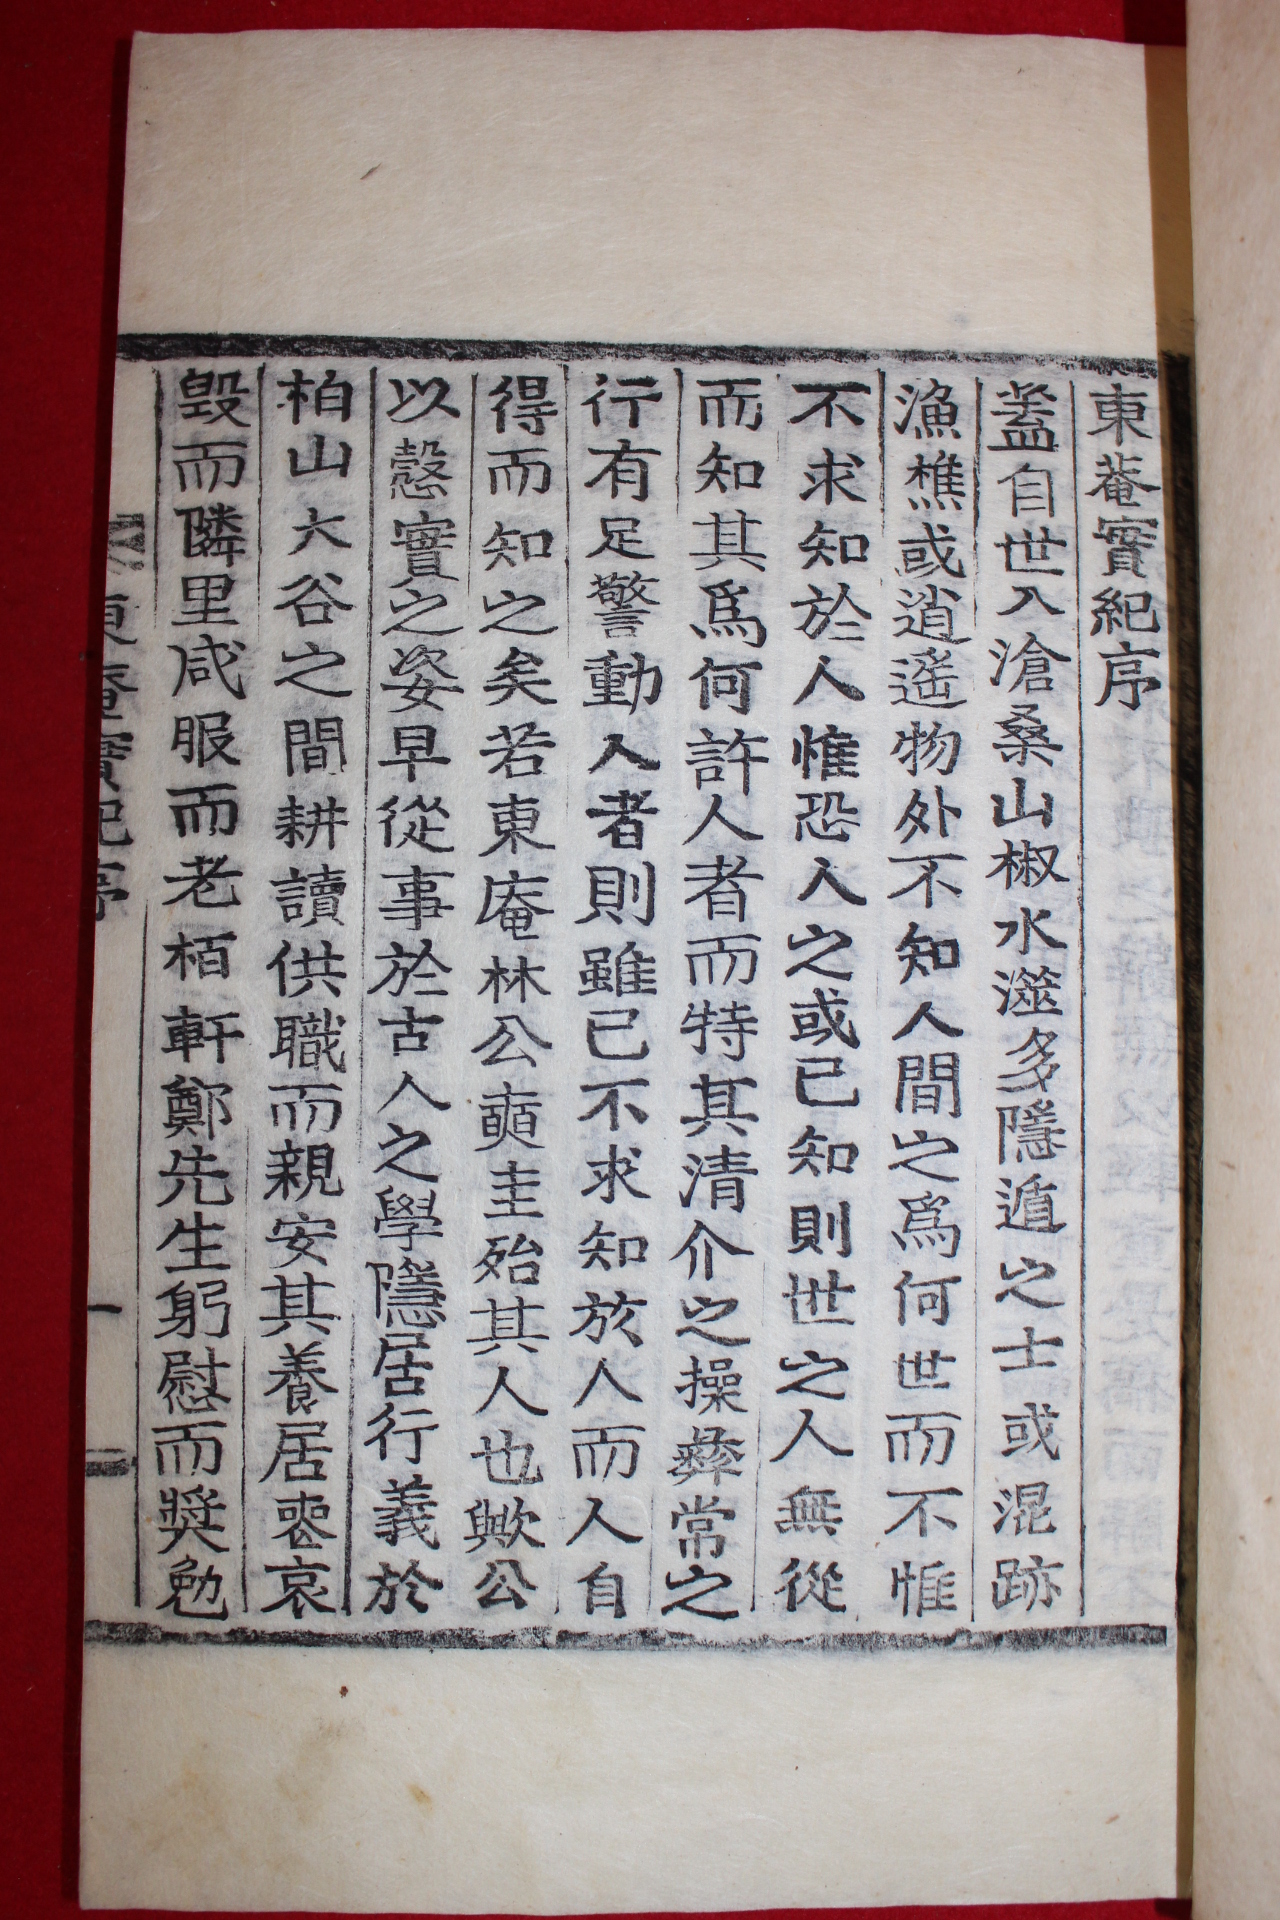 東菴實紀序
盖自世入滄桑山椒水澨多隱遁之士或混跡
漁樵或逍遙物外不知人間之爲何世而不惟
不求知於人惟恐人之或已知則世之人無從
而知其爲何許人者而特其清介之操彛常之
行有足警動人者則雖已不求知於人而人自
得而知之矣若東庵林公奭圭殆其人也歟公
以慤實之姿早從事於古人之學隱居行義於
柏山大谷之間耕讀供職而親安其養居喪哀
毁而隣里咸服而老栢軒鄭先生躬慰而奬勉
東菴實紀序
一